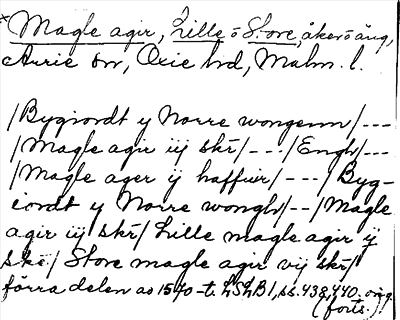 *Magle agir, Lille o Store, åker o äng,
Arrie sn, Oxie hrd, Malm. l.
/Bygiordt y Norre wongenn/---
/Magle agir iij skr/---/Engh/---
/Magle ager ij haffuir/---/Byg-
iordt y Norre wongh/--/Magle
agir iij skr/ Lille magle agir ij
skr/ Store magle agir vij skr/
förra delen av 1570-t. LSLB 1, ss. 438, 440. orig.
(forts.)